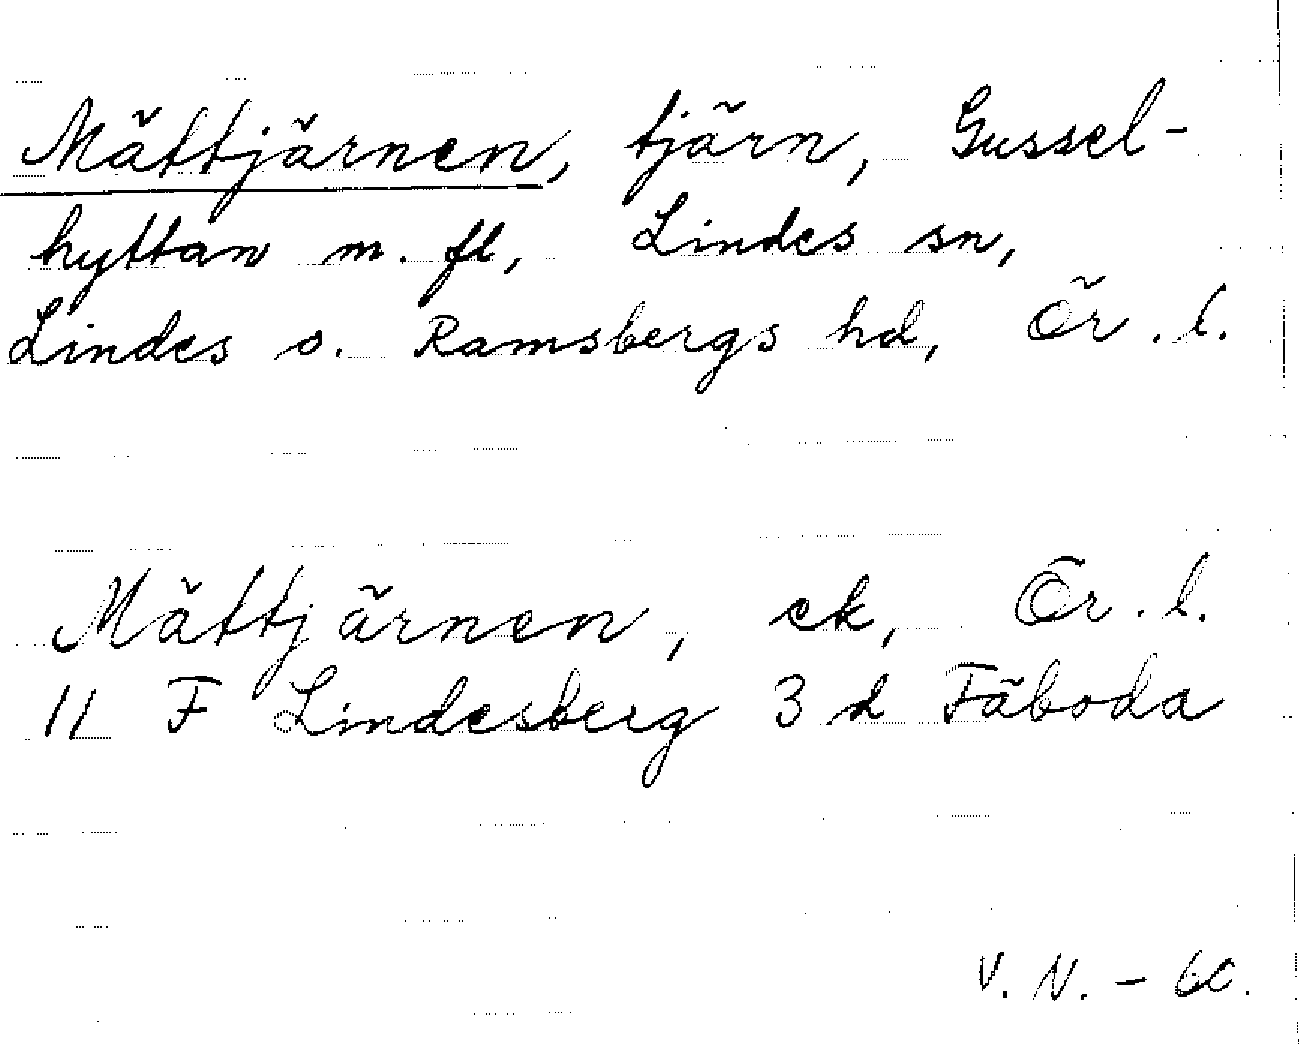 Mättjärnen, tjärn, Gussel-
hyttan m. fl, Lindes sn,
Lindes o. Ramsbergs hd, Ör. l.
Mättjärnen, ek, Ör. l.
11 F Lindesberg 3 d Fäboda
V. N. - 60.